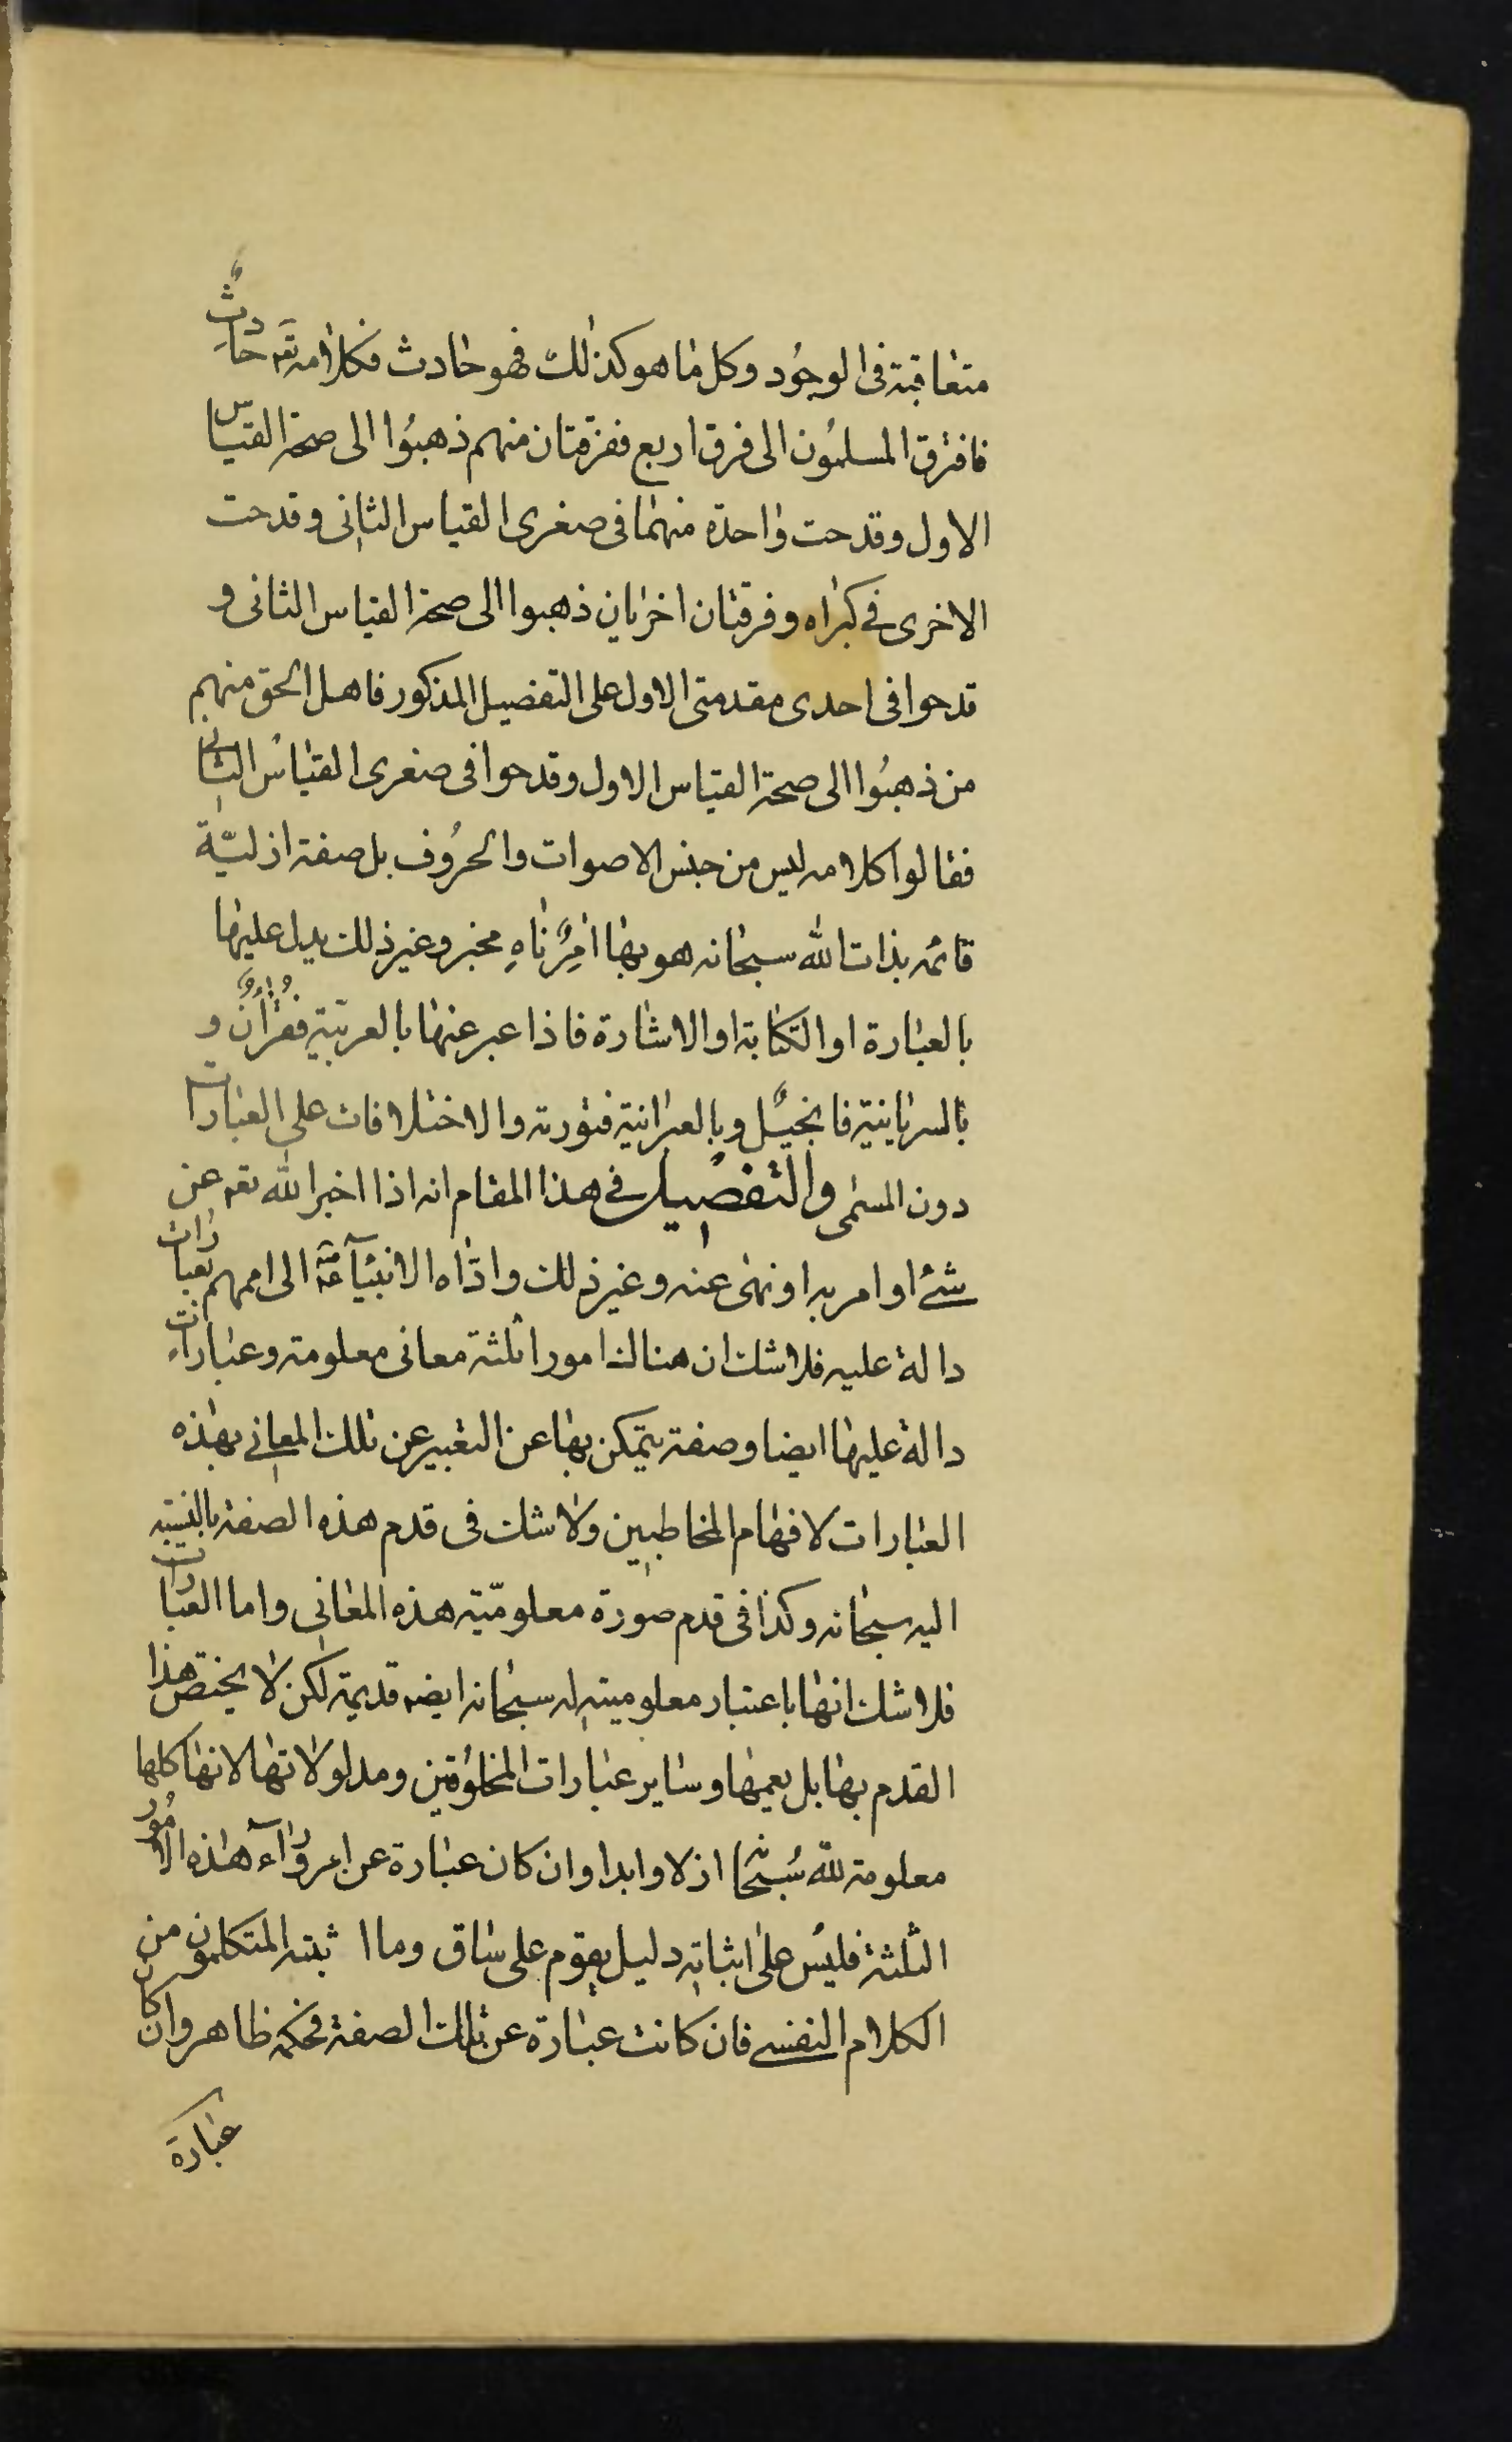 متعاقبة فى الوجُود وكل ما هو كذلك فهو حادث فكلامه تعه حادثٌ
فافترق المسلمُون الى فرق اربع ففرقتان منهم ذهبُوا الى صحة القياس
الاول وقدحت واحدة منهما فى صغرى القياس الثانى وقدحت
الاخرى فى كبراه وفرقتان اخريان ذهبوا الى صحة القياس الثانى و
قدحوا فى احدى مقدمتى الاول على التفضيل المذكور فاهل الحق منهم
من ذهبُوا الى صحة القياس الاول وقدحوا فى صغرى القياسُ الثانى
فقالوا كلامه ليس من جنس الاصوات والحرُوف بل صفة ازليّة
قائمه بذات الله سبحانه هو بها امِرٌ ناهِ مخبر وغير ذلك يدل عليها
بالعبارة او الكتابة او الاشارة فاذا عبر عنها بالعربيّة فقُرأنٌ و
بالسريانية فانجيلٌ وبالعبرانية فتورته والاختلافات على العبارات
دون المسمى والتفصيل فى هذا المقام انه اذا اخبر الله تعه عن
شئ او امر به او نهى عنه وغير ذلك واداه الانبيآء عمّ الى اممهم بعبارات
دالة عليه فلا شك ان هناك امورا ثلثة معانى معلومة وعبارات
دالة عليها ايضا وصفة يتمكن بها عن التعبير عن تلك المعانى بهذه
العبارات لافهام المخاطبين ولا شك فى قدم هذه الصفة بالنسبة
اليه سبحانه وكذا فى قدم صورة معلوميّة هذه المعانى واما العبارات
فلا شك انها باعتبار معلوميته له سبحانه ايضه قديمة لكن لا يختص هذا
القدم بها بل يعمها وساير عبارات المخلوُقين ومدلولاتها لانها كلها
معلومة لله سُبحانه ازلا وابدا وان كان عبارة عن امر ورآء هذه الامُور
الثلثة فليسُ على اثباته دليل يقوم على ساق وما ا ثبته المتكلمون من
الكلام النفسى فان كانت عبارة عن تلك الصفة فحكمه ظاهر وان كان
عبارة